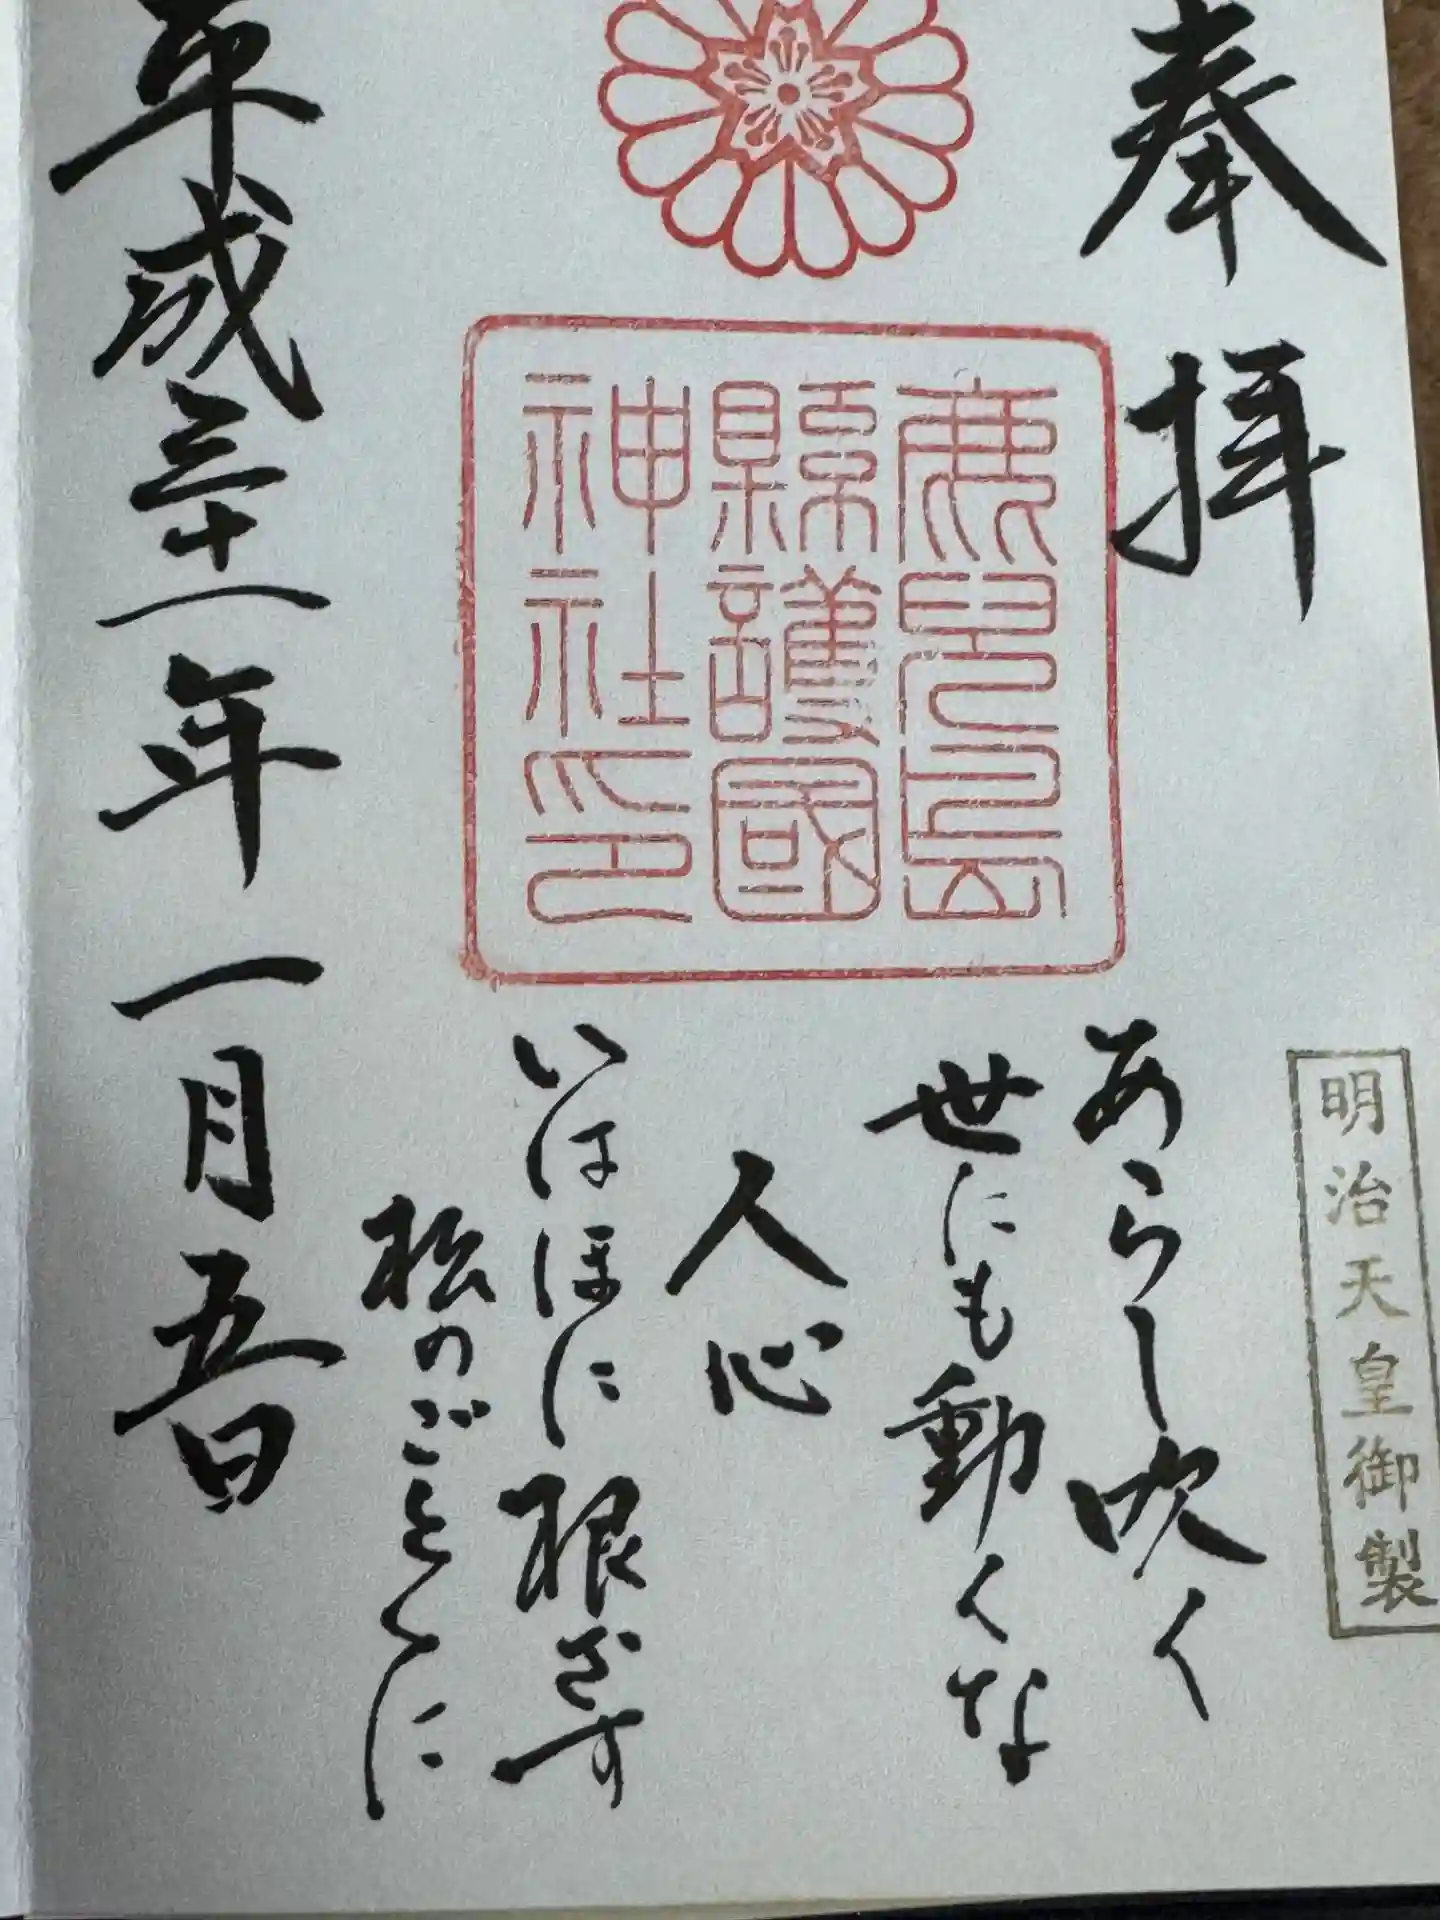 奉拝
明治天皇御製
鹿兒島
縣護國
神社印
あらし吹く
世にも動くな
人心
いはほに根ざす
松のごとくに
平成三十一年一月五日